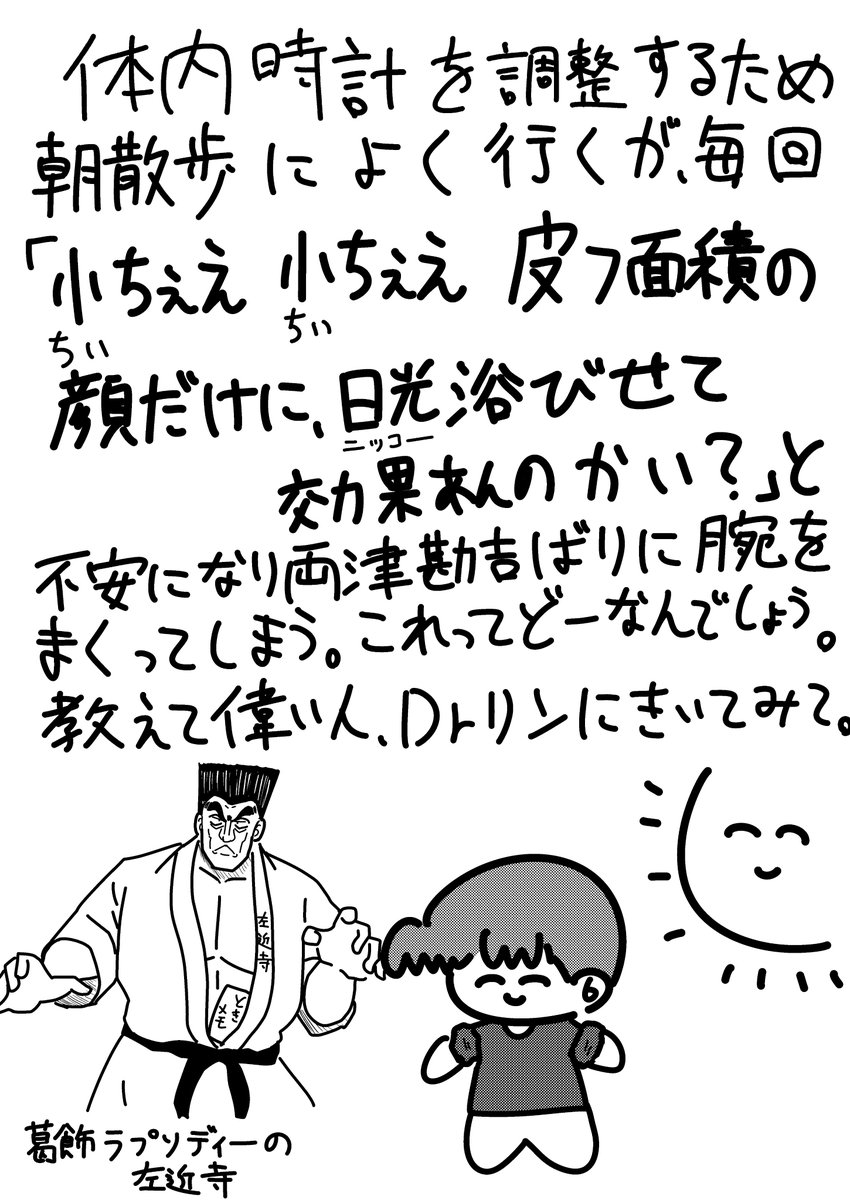 体内時計を調整するため
朝散歩によく行くが、毎回
「小ちぇえ 小ちぇえ 皮フ面積の
ちい ちい
顔だけに、日光浴びせて
ニッコー
効果あんのかい?」と
不安になり両津勘吉ばりに腕を
まくってしまう。これってどーなんでしょう。
教えて偉い人、Drリンにきいてみて。
左近寺
ときメモ
葛飾ラプソディーの
左近寺